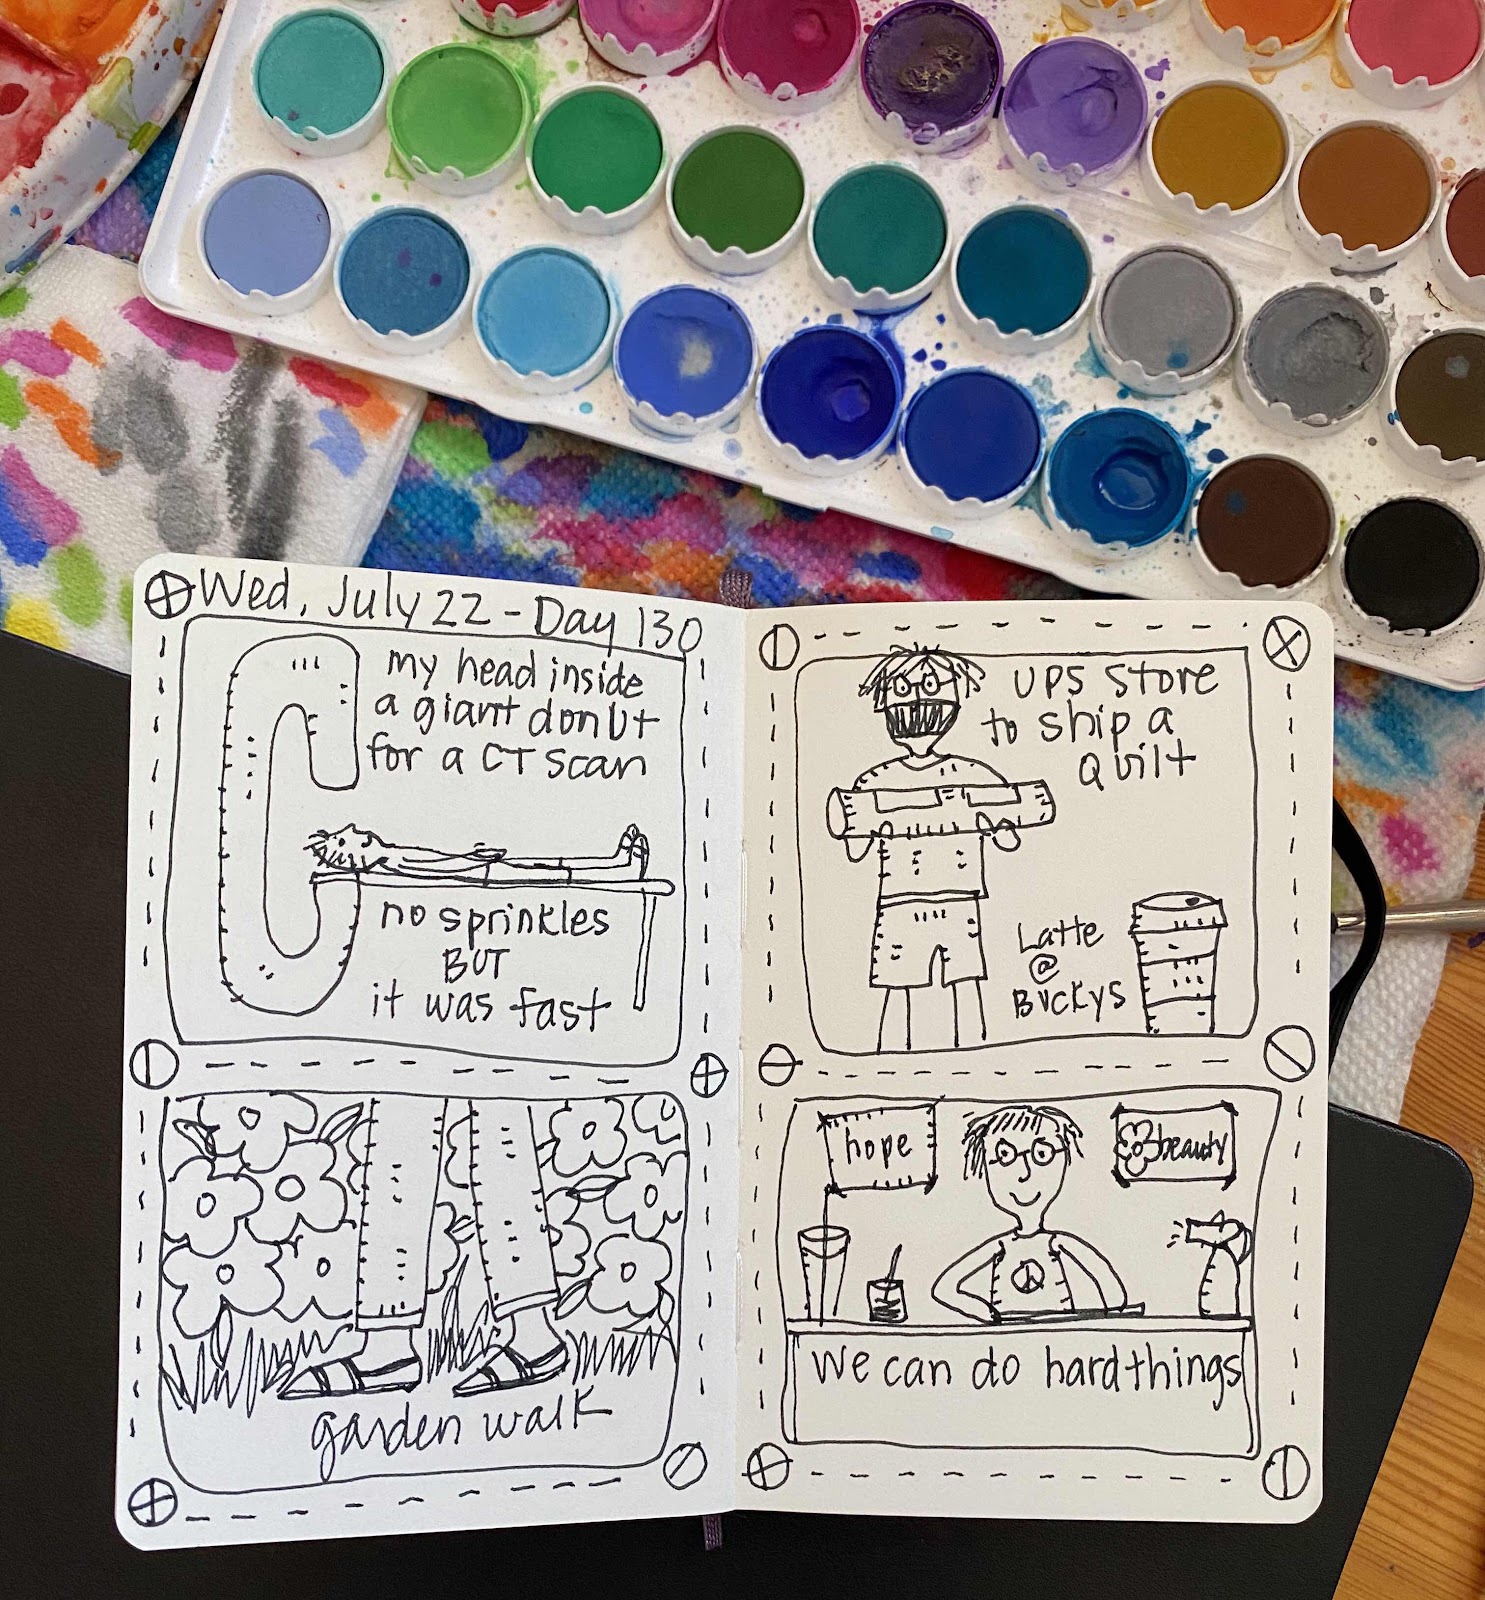 Wed, July 22 - Day 130
my head inside
a giant donut
for a CT scan
no sprinkles
BUT
it was fast
garden walk
UPS store
to ship a
quilt
Latte
@
Buckys
hope
beauty
we can do hard things